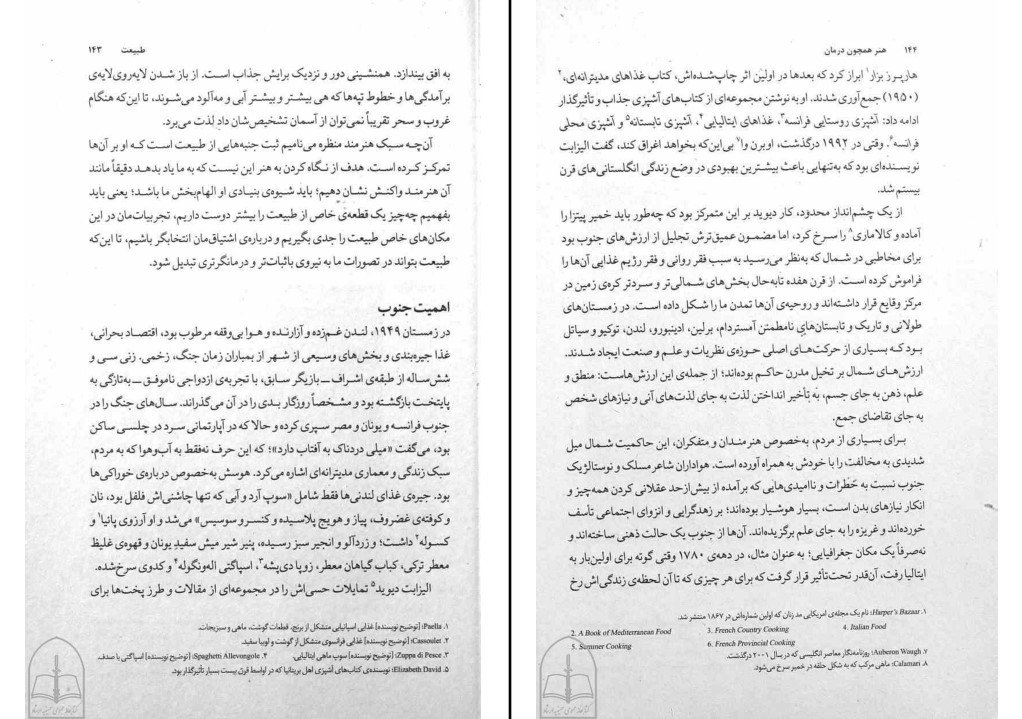 طبیعت ۱۴۳
به افق بیندازد. همنشینی دور و نزدیک برایش جذاب است. از باز شدن لایه‌روی‌لایه‌ی
برآمدگی‌ها و خطوط تپه‌ها که هی بیشتر و بیشتر آبی و مه‌آلود می‌شوند، تا این‌که هنگام
غروب و سحر تقریباً نمی‌توان از آسمان تشخیص‌شان داد لذت می‌برد.
آن‌چه سبک هنرمند منظره می‌نامیم ثبت جنبه‌هایی از طبیعت است که او بر آن‌ها
تمرکز کرده است. هدف از نگاه کردن به هنر این نیست که به ما یاد بدهد دقیقاً مانند
آن هنرمند واکنش نشان دهیم؛ باید شیوه‌ی بنیادی او الهام‌بخش ما باشد؛ یعنی باید
بفهمیم چه‌چیز یک قطعه‌ی خاص از طبیعت را بیشتر دوست داریم، تجربیات‌مان در این
مکان‌های خاص طبیعت را جدی بگیریم و درباره‌ی اشتیاق‌مان انتخابگر باشیم، تا این‌که
طبیعت بتواند در تصورات ما به نیروی باثبات‌تر و درمانگرتری تبدیل شود.
اهمیت جنوب
در زمستان ۱۹۴۹، لندن غم‌زده و آزارنده و هوا بی‌وقفه مرطوب بود، اقتصاد بحرانی،
غذا جیره‌بندی و بخش‌های وسیعی از شهر از بمباران زمان جنگ، زخمی. زنی سی و
شش‌ساله از طبقه‌ی اشراف ــ بازیگر سابق، با تجربه‌ی ازدواجی ناموفق ــ به‌تازگی به
پایتخت بازگشته بود و مشخصاً روزگار بدی را در آن می‌گذراند. سال‌های جنگ را در
جنوب فرانسه و یونان و مصر سپری کرده و حالا که در آپارتمانی سرد در چلسی ساکن
بود، می‌گفت «میلی دردناک به آفتاب دارد»؛ که این حرف نه‌فقط به آب‌وهوا که به مردم،
سبک زندگی و معماری مدیترانه‌ای اشاره می‌کرد. هوسش به‌خصوص درباره‌ی خوراکی‌ها
بود. جیره‌ی غذای لندنی‌ها فقط شامل «سوپ آرد و آبی که تنها چاشنی‌اش فلفل بود، نان
و کوفته‌ی غضروف، پیاز و هویج پلاسیده و کنسرو سوسیس» می‌شد و او آرزوی پائیا۱ و
کسوله۲ داشت؛ و زردآلو و انجیر سبز رسیده، پنیر شیر میش سفیدِ یونان و قهوه‌ی غلیظ
معطر ترکی، کباب گیاهان معطر، زوپا دی‌پشه۳، اسپاگتی اله‌ونگوله۴ و کدوی سرخ‌شده.
الیزابت دیوید۵ تمایلات حسی‌اش را در مجموعه‌ای از مقالات و طرز پخت‌ها برای
۱. Paella؛ [توضیح نویسنده] غذایی اسپانیایی متشکل از برنج، قطعات گوشت، ماهی و سبزیجات.
۲. Cassoulet؛ [توضیح نویسنده] غذایی فرانسوی متشکل از گوشت و لوبیا سفید.
۳. Zuppa di Pesce؛ [توضیح نویسنده] سوپ ماهی ایتالیایی. ۴. Spaghetti Allevongole؛ [توضیح نویسنده] اسپاگتی با صدف.
۵. Elizabeth David؛ نویسنده‌ی کتاب‌های آشپزی اهل بریتانیا که در اواسط قرن بیست بسیار تأثیرگذار بود.
۱۴۴ هنر همچون درمان
هارپرز بزار۱ ابراز کرد که بعدها در اولین اثر چاپ‌شده‌اش، کتاب غذاهای مدیترانه‌ای،۲
(۱۹۵۰) جمع‌آوری شدند. او به نوشتن مجموعه‌ای از کتاب‌های آشپزی جذاب و تأثیرگذار
ادامه داد: آشپزی روستایی فرانسه۳، غذاهای ایتالیایی۴، آشپزی تابستانه۵ و آشپزی محلی
فرانسه۶. وقتی در ۱۹۹۲ درگذشت، اوبرن وا۷ بی‌این‌که بخواهد اغراق کند، گفت الیزابت
نویسنده‌ای بود که به‌تنهایی باعث بیشترین بهبودی در وضع زندگی انگلستانی‌های قرن
بیستم شد.
از یک چشم‌انداز محدود، کار دیوید بر این متمرکز بود که چه‌طور باید خمیر پیتزا را
آماده و کالاماری۸ را سرخ کرد، اما مضمون عمیق‌ترش تجلیل از ارزش‌های جنوب بود
برای مخاطبی در شمال که به‌نظر می‌رسید به سبب فقر روانی و فقر رژیم غذایی آن‌ها را
فراموش کرده است. از قرن هفده تابه‌حال بخش‌های شمالی‌تر و سردتر کره‌ی زمین در
مرکز وقایع قرار داشته‌اند و روحیه‌ی آن‌ها تمدن ما را شکل داده است. در زمستان‌های
طولانی و تاریک و تابستان‌های نامطمئن آمستردام، برلین، ادینبورو، لندن، توکیو و سیاتل
بود که بسیاری از حرکت‌های اصلی حوزه‌ی نظریات و علم و صنعت ایجاد شدند.
ارزش‌های شمال بر تخیل مدرن حاکم بوده‌اند؛ از جمله‌ی این ارزش‌هاست: منطق و
علم، ذهن به جای جسم، به‌تأخیر انداختن لذت به جای لذت‌های آنی و نیازهای شخص
به جای تقاضای جمع.
برای بسیاری از مردم، به‌خصوص هنرمندان و متفکران، این حاکمیت شمال میل
شدیدی به مخالفت را با خودش به همراه آورده است. هواداران شاعرمسلک و نوستالژیک
جنوب نسبت به خطرات و ناامیدی‌هایی که برآمده از بیش‌ازحد عقلانی کردن همه‌چیز و
انکار نیازهای بدن است، بسیار هوشیار بوده‌اند؛ بر زهدگرایی و انزوای اجتماعی تأسف
خورده‌اند و غریزه را به جای علم برگزیده‌اند. آن‌ها از جنوب یک حالت ذهنی ساخته‌اند و
نه‌صرفاً یک مکان جغرافیایی؛ به عنوان مثال، در دهه‌ی ۱۷۸۰ وقتی گوته برای اولین‌بار به
ایتالیا رفت، آن‌قدر تحت‌تأثیر قرار گرفت که برای هر چیزی که تا آن لحظه‌ی زندگی‌اش رخ
۱. Harper's Bazaar؛ نام یک مجله‌ی امریکایی مد زنان که اولین شماره‌اش در ۱۸۶۷ منتشر شد.
2. A Book of Mediterranean Food 3. French Country Cooking 4. Italian Food
5. Summer Cooking 6. French Provincial Cooking
۷. Auberon Waugh؛ روزنامه‌نگار معاصر انگلیسی که در سال ۲۰۰۱ درگذشت.
۸. Calamari؛ ماهی مرکب که به شکل حلقه در خمیر سرخ می‌شود.